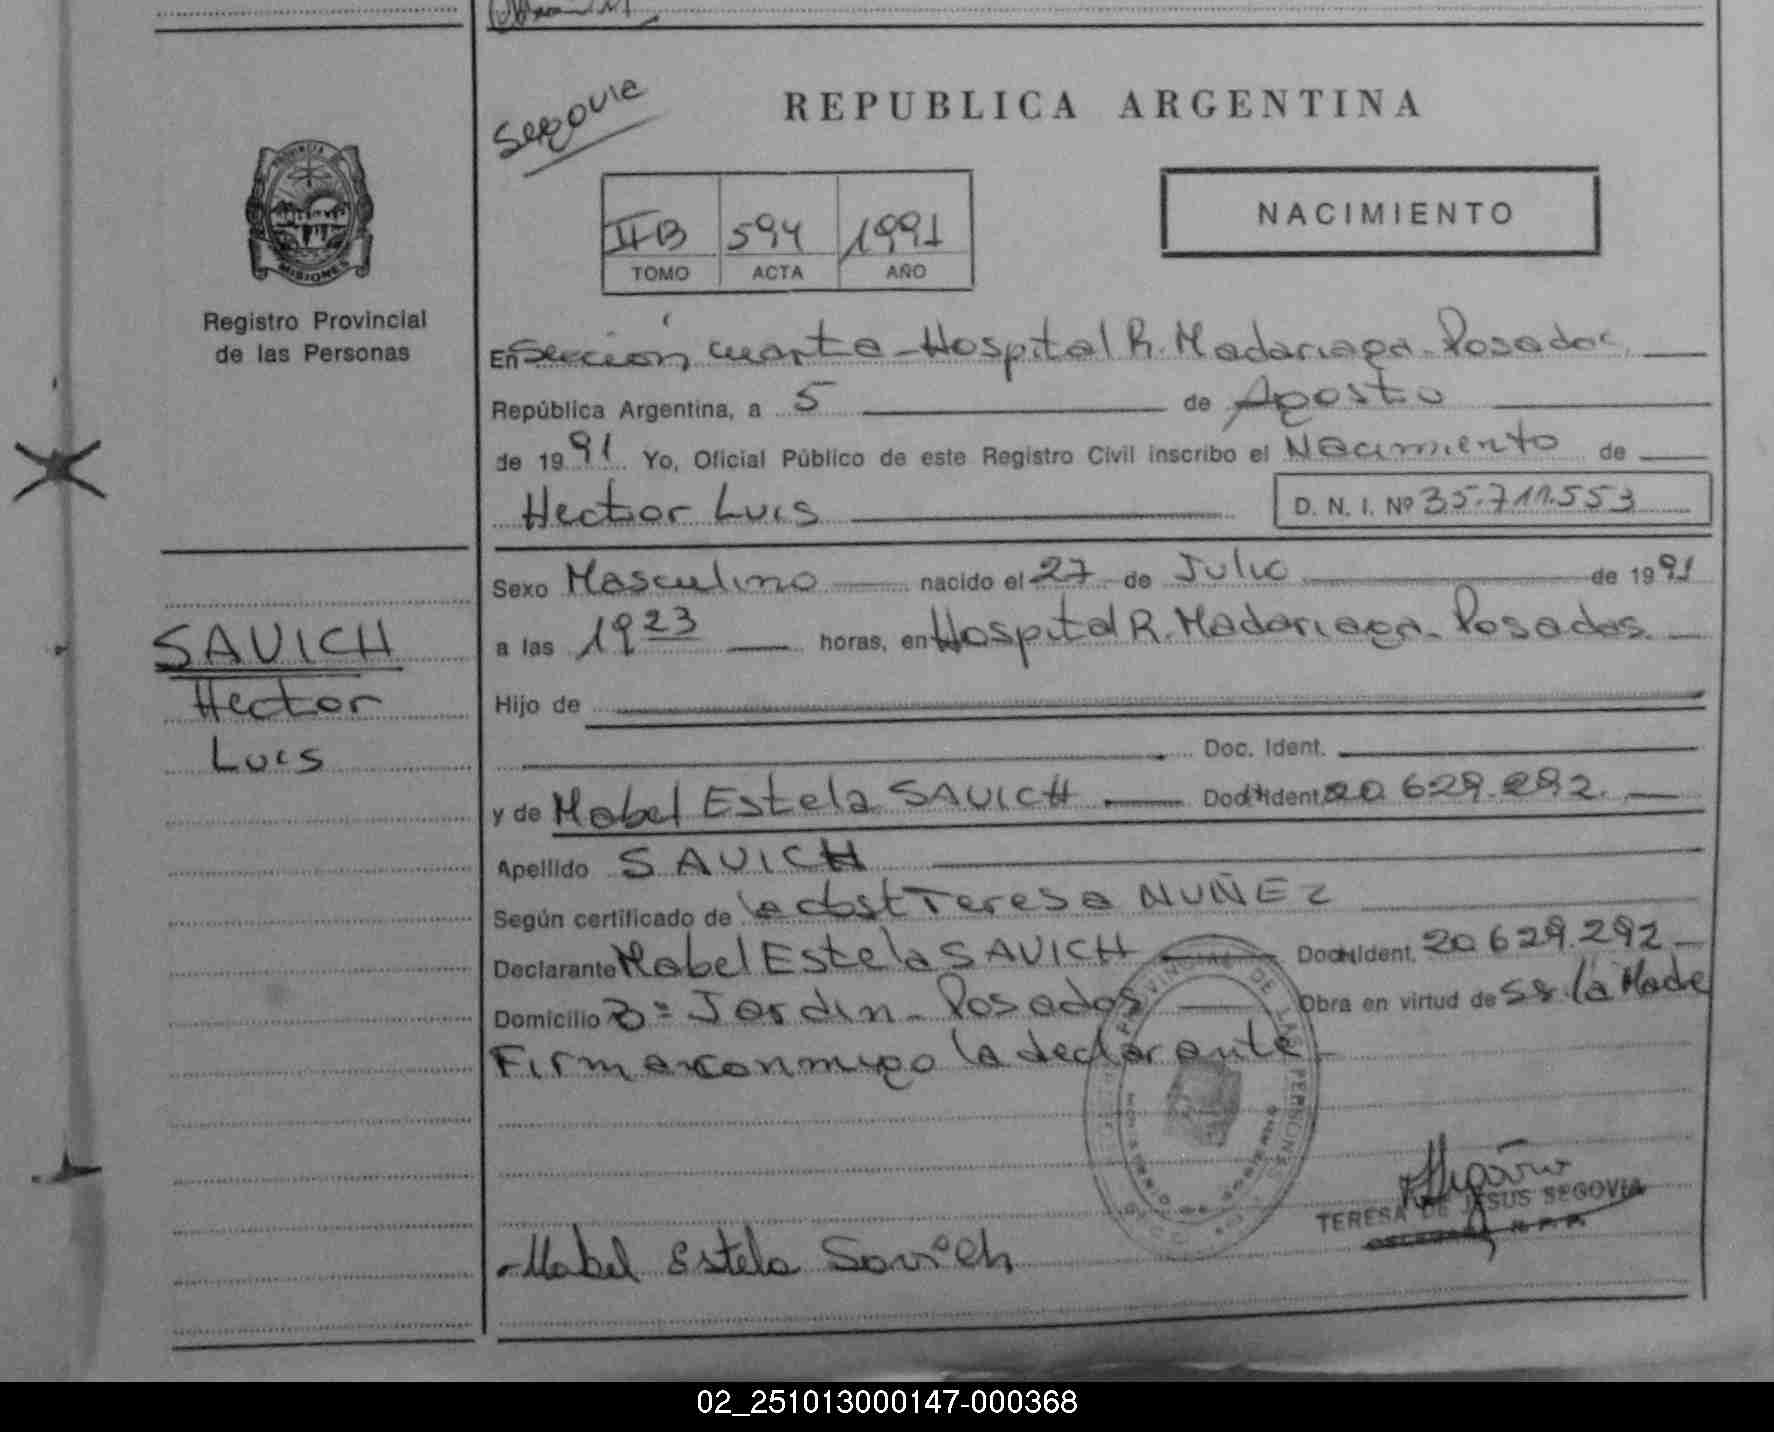 Segovia
REPUBLICA ARGENTINA
NACIMIENTO
II B 594 1991
TOMO ACTA AÑO
PROVINCIA DE
MISIONES
Registro Provincial
de las Personas
En Sección cuarta - Hospital R. Madariaga - Posadas
República Argentina, a 5 de Agosto
de 1991 Yo, Oficial Público de este Registro Civil inscribo el Nacimiento de
Hector Luis D. N. I. Nº 35.711.553
Sexo Masculino nacido el 27 de Julio de 1991
a las 19 23 horas, en Hospital R. Madariaga - Posadas
SAVICH
Hector
Luis
Hijo de
Doc. Ident.
y de Mabel Estela SAVICH Doc. Ident. 20 629.292
Apellido SAVICH
Según certificado de la obst Teresa NUÑEZ
Declarante Mabel Estela SAVICH Doc. Ident. 20 629.292
Domicilio Bº Jardin - Posados Obra en virtud de ss. la Made
Firma conmigo la declarante
PROVINCIAL DE LAS PERSONAS
TERESA DE JESUS SEGOVIA
Mabel Estela Savich
02_251013000147-000368